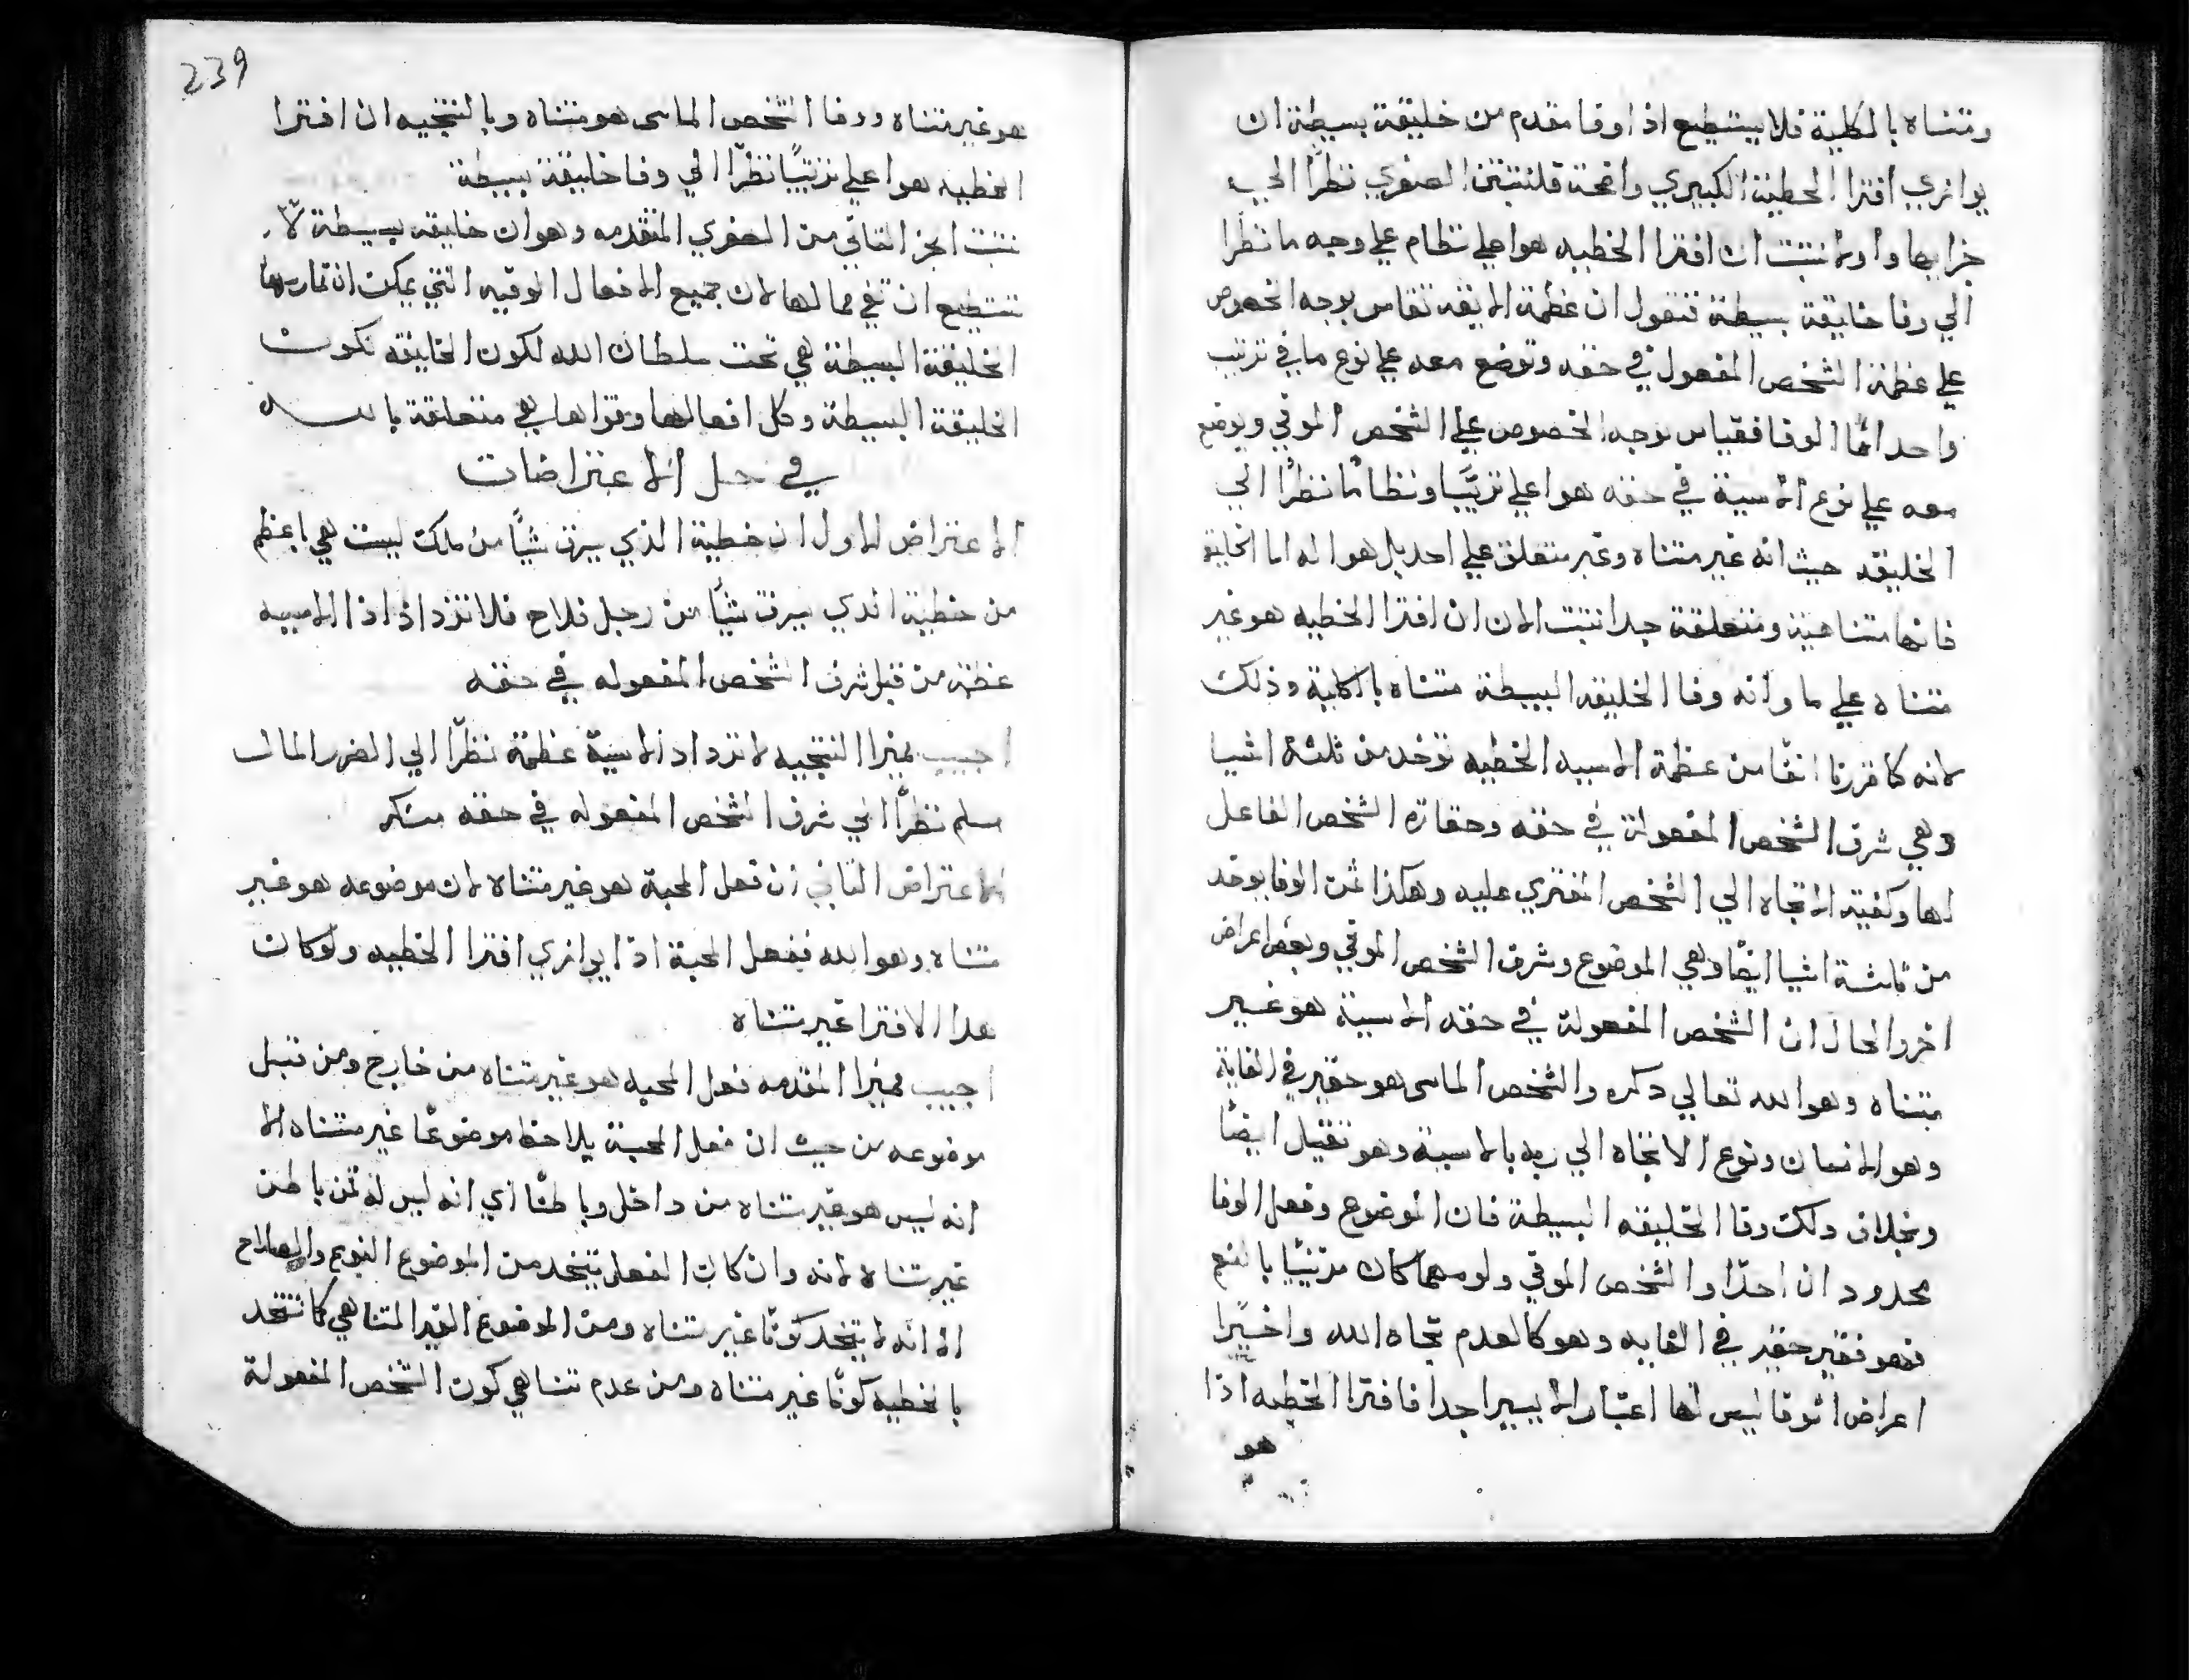 ومتناه بالكلية فلا يستطيع اذا وفا مقدم من خليقة بسيطة ان
يوازي افترا الخطية الكبيري واضحة فلنثبتن الصغري نظرًا الي
جزايها واولا نثبت ان افترا الخطيه هو اعلي نظام علي وجه ما نظرا
الي وفا خليقة بسيطة فنقول ان عظمة الايقه تقاس بوجه الخصوص
علي عظمة الشخص المفعول في حقه وتوضع معه علي نوع ما في ترتيب
واحد امّا الوفا فقياس بوجه الخصوص علي الشخص الموفي ويوضع
معه علي نوع الاسية في حقه هو اعلي ترتيبًا ونظامًا نظرًا الي
الخليقه حيث انه غير متناه وغير متعلق علي احد بل هو اله اما الخليقه
فانها متناهية ومتعلقة جدا نثبت الان ان افترا الخطيه هو غير
متناه علي ما وانه وفا الخليقه البسيطة متناه بالكلية وذلك
لانه كما قررنا انفًا من عظمة الاسيه الخطيه توخد من ثلثة اشيا
وهي شرف الشخص المفعولة في حقه وحقارة الشخص الفاعل
لها وكفية الاتجاه الي الشخص المفتري عليه وهكذا ثمن الوفا يوخد
من ثلثة اشيا ايضًا وهي الموضوع وشرف الشخص الموفي وبعض اعراض
اخر والحال ان الشخص المفعولة في حقه الاسية هو غير
متناه وهو الله تعالي ذكره والشخص الماسى هو حقير في الغاية
وهو الانسان ونوع الاتجاه الي ربه بالاسية وهو ثقيل ايضًا
وبخلاف ذلك وفا الخليقه البسيطة فان الموضوع وفعل الوفا
محدودان احدًا والشخص الموفي ولو مهما كان مزينًا بالنعم
فهو فقير حقير في الغايه وهو كالعدم تجاه الله واخيرًا
اعراض الوفا ليس لها اعتبار الا يسيرا جدا فافترا الخطيه اذا
هو
239
هو غير متناه ووفا الشخص الماسى هو متناه وبالنتيجيه ان افترا
الخطيه هو اعلي ترتيبًا نظرًا الي وفا خليقة بسيطة
نثبت الجز الثاني من الصغري المتقدمه وهو ان خليقه بسيطة لا
تستطيع ان تفي مما لها لان جميع الافعال الوفيه التي يمكن ان تمارسها
الخليقة البسيطة هي تحت سلطان الله لكون الخليقه تكون
الخليقة البسيطة وكل افعالها وقواها هي متعلقة بالله
في حل الاعتراضات
الاعتراض الاول ان خطية الذي يسرق شيًا من ملك ليست هي باعظم
من خطية الذي يسرق شيًا من رجل فلاح فلا تزداد اذا الاسيه
عظة من قبل شرف الشخص المفعوله في حقه
اجيب مميزا النتيجيه لا تزداد الاسية عظمة نظرًا الي الضرر المال
مسلم نظرًا الي شرف الشخص المفعوله في حقه منكر
الاعتراض الثاني ان فعل المحبة هو غير متناه لان موضوعه هو غير
متناه وهو الله ففعل المحبة اذا يوازي افترا الخطيه ولو كان
هذا الافترا غير متناه
اجيب مميزا المقدمه فعل المحبه هو غير متناه من خارج ومن قبل
موضوعه من حيث ان فعل المحبة يلاحظ موضوعًا غير متناه الا
انه ليس هو غير متناه من داخل وباطنًا اي انه ليس له ثمن باطن
غير متناه لانه وان كان الفعل يتخد من الموضوع النوع والصلاح
الا انه لا يتخد كونًا غير متناه ومن الموضوع الغير المتناهي كما تتخد
بالخطيه كونًا غير متناه ومن عدم تناهي كون الشخص المفعولة